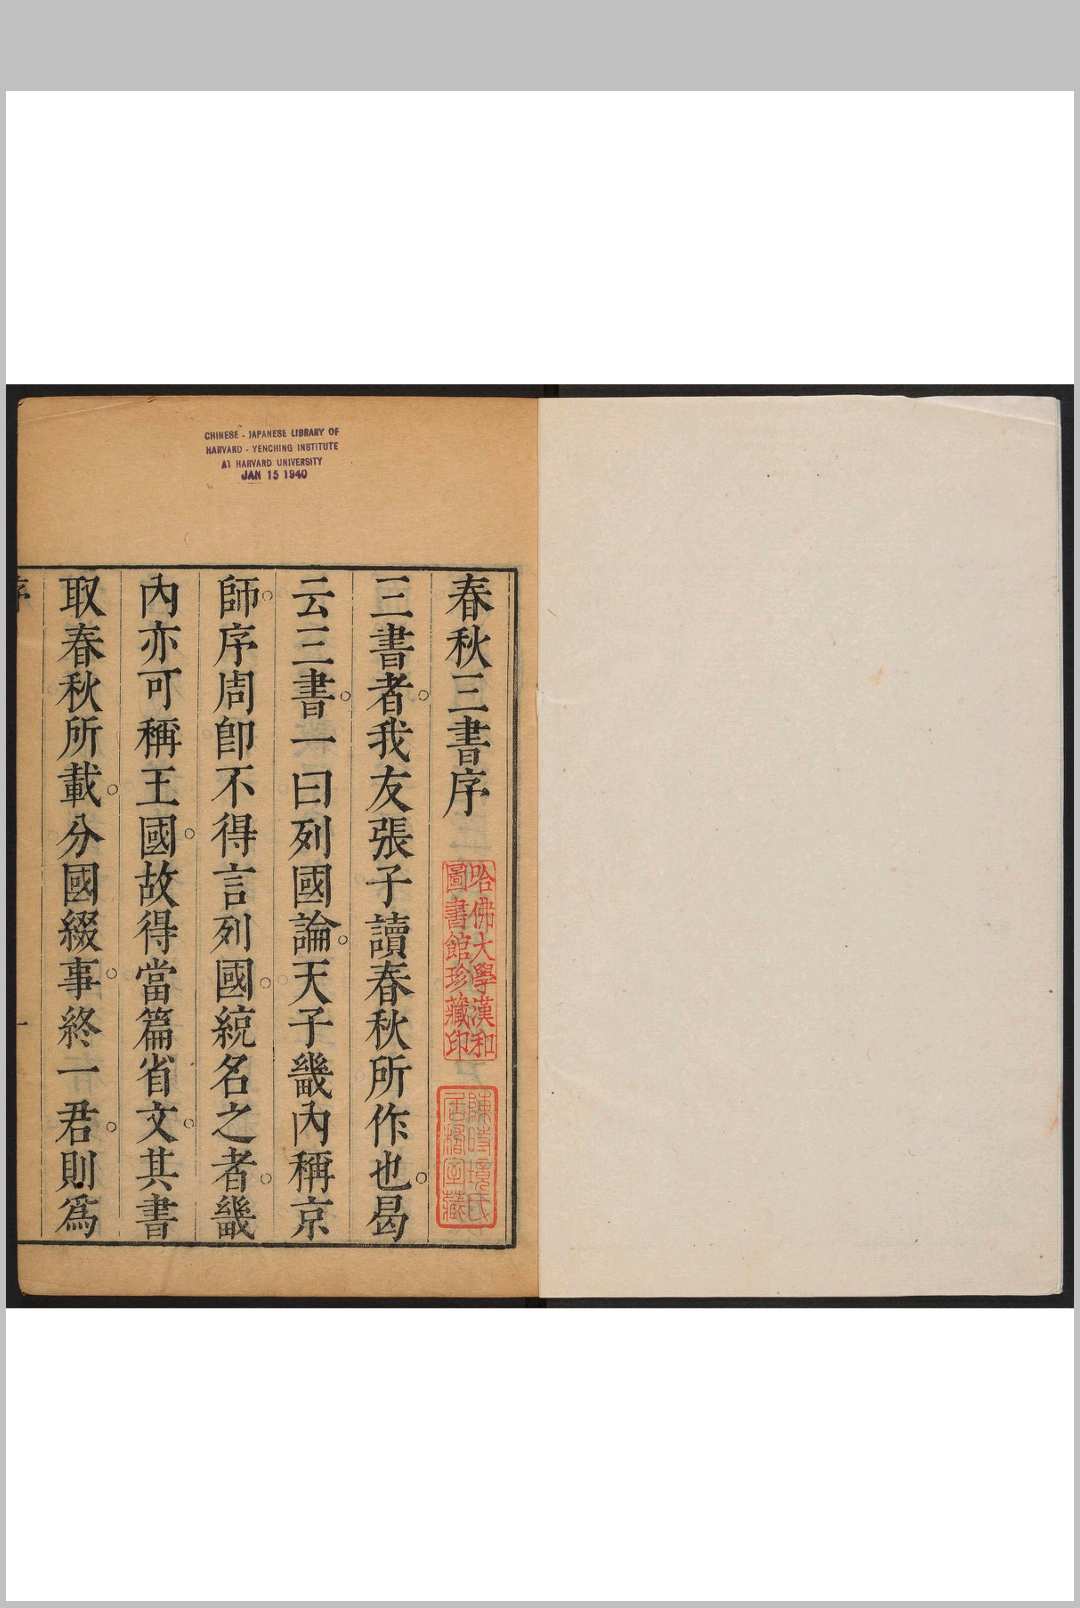 CHINESE - JAPANESE LIBRARY OF
HARVARD - YENCHING INSTITUTE
AT HARVARD UNIVERSITY
JAN 15 1940
春秋三書序
哈佛大學漢和
圖書館珍藏印
三書者我友張子讀春秋所作也曷
云三書一曰列國論天子畿內稱京
師序周卽不得言列國統名之者畿
內亦可稱王國故得當篇省文其書
取春秋所載分國綴事終一君則爲
序
一